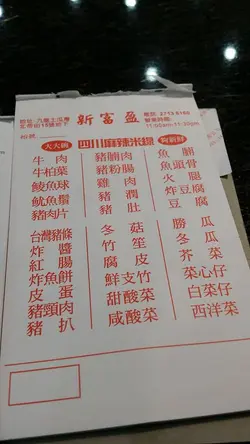 新富盈
營業時間:
四川麻辣米線
牛肉 豬腩肉 魚腩
牛柏葉 豬粉腸 魚頭骨
鯪魚球 雞肉 火腿
魷魚鬚 豬潤 炸豆腐
豬肉片 豬肚 豆腐
台灣豬條 冬菇 勝瓜
炸醬 竹笙 冬瓜
紅腸 腐皮 芥菜
炸魚餅 鮮支竹 菜心仔
皮蛋 甜酸菜 白菜仔
豬頸肉 咸酸菜 西洋菜
豬扒